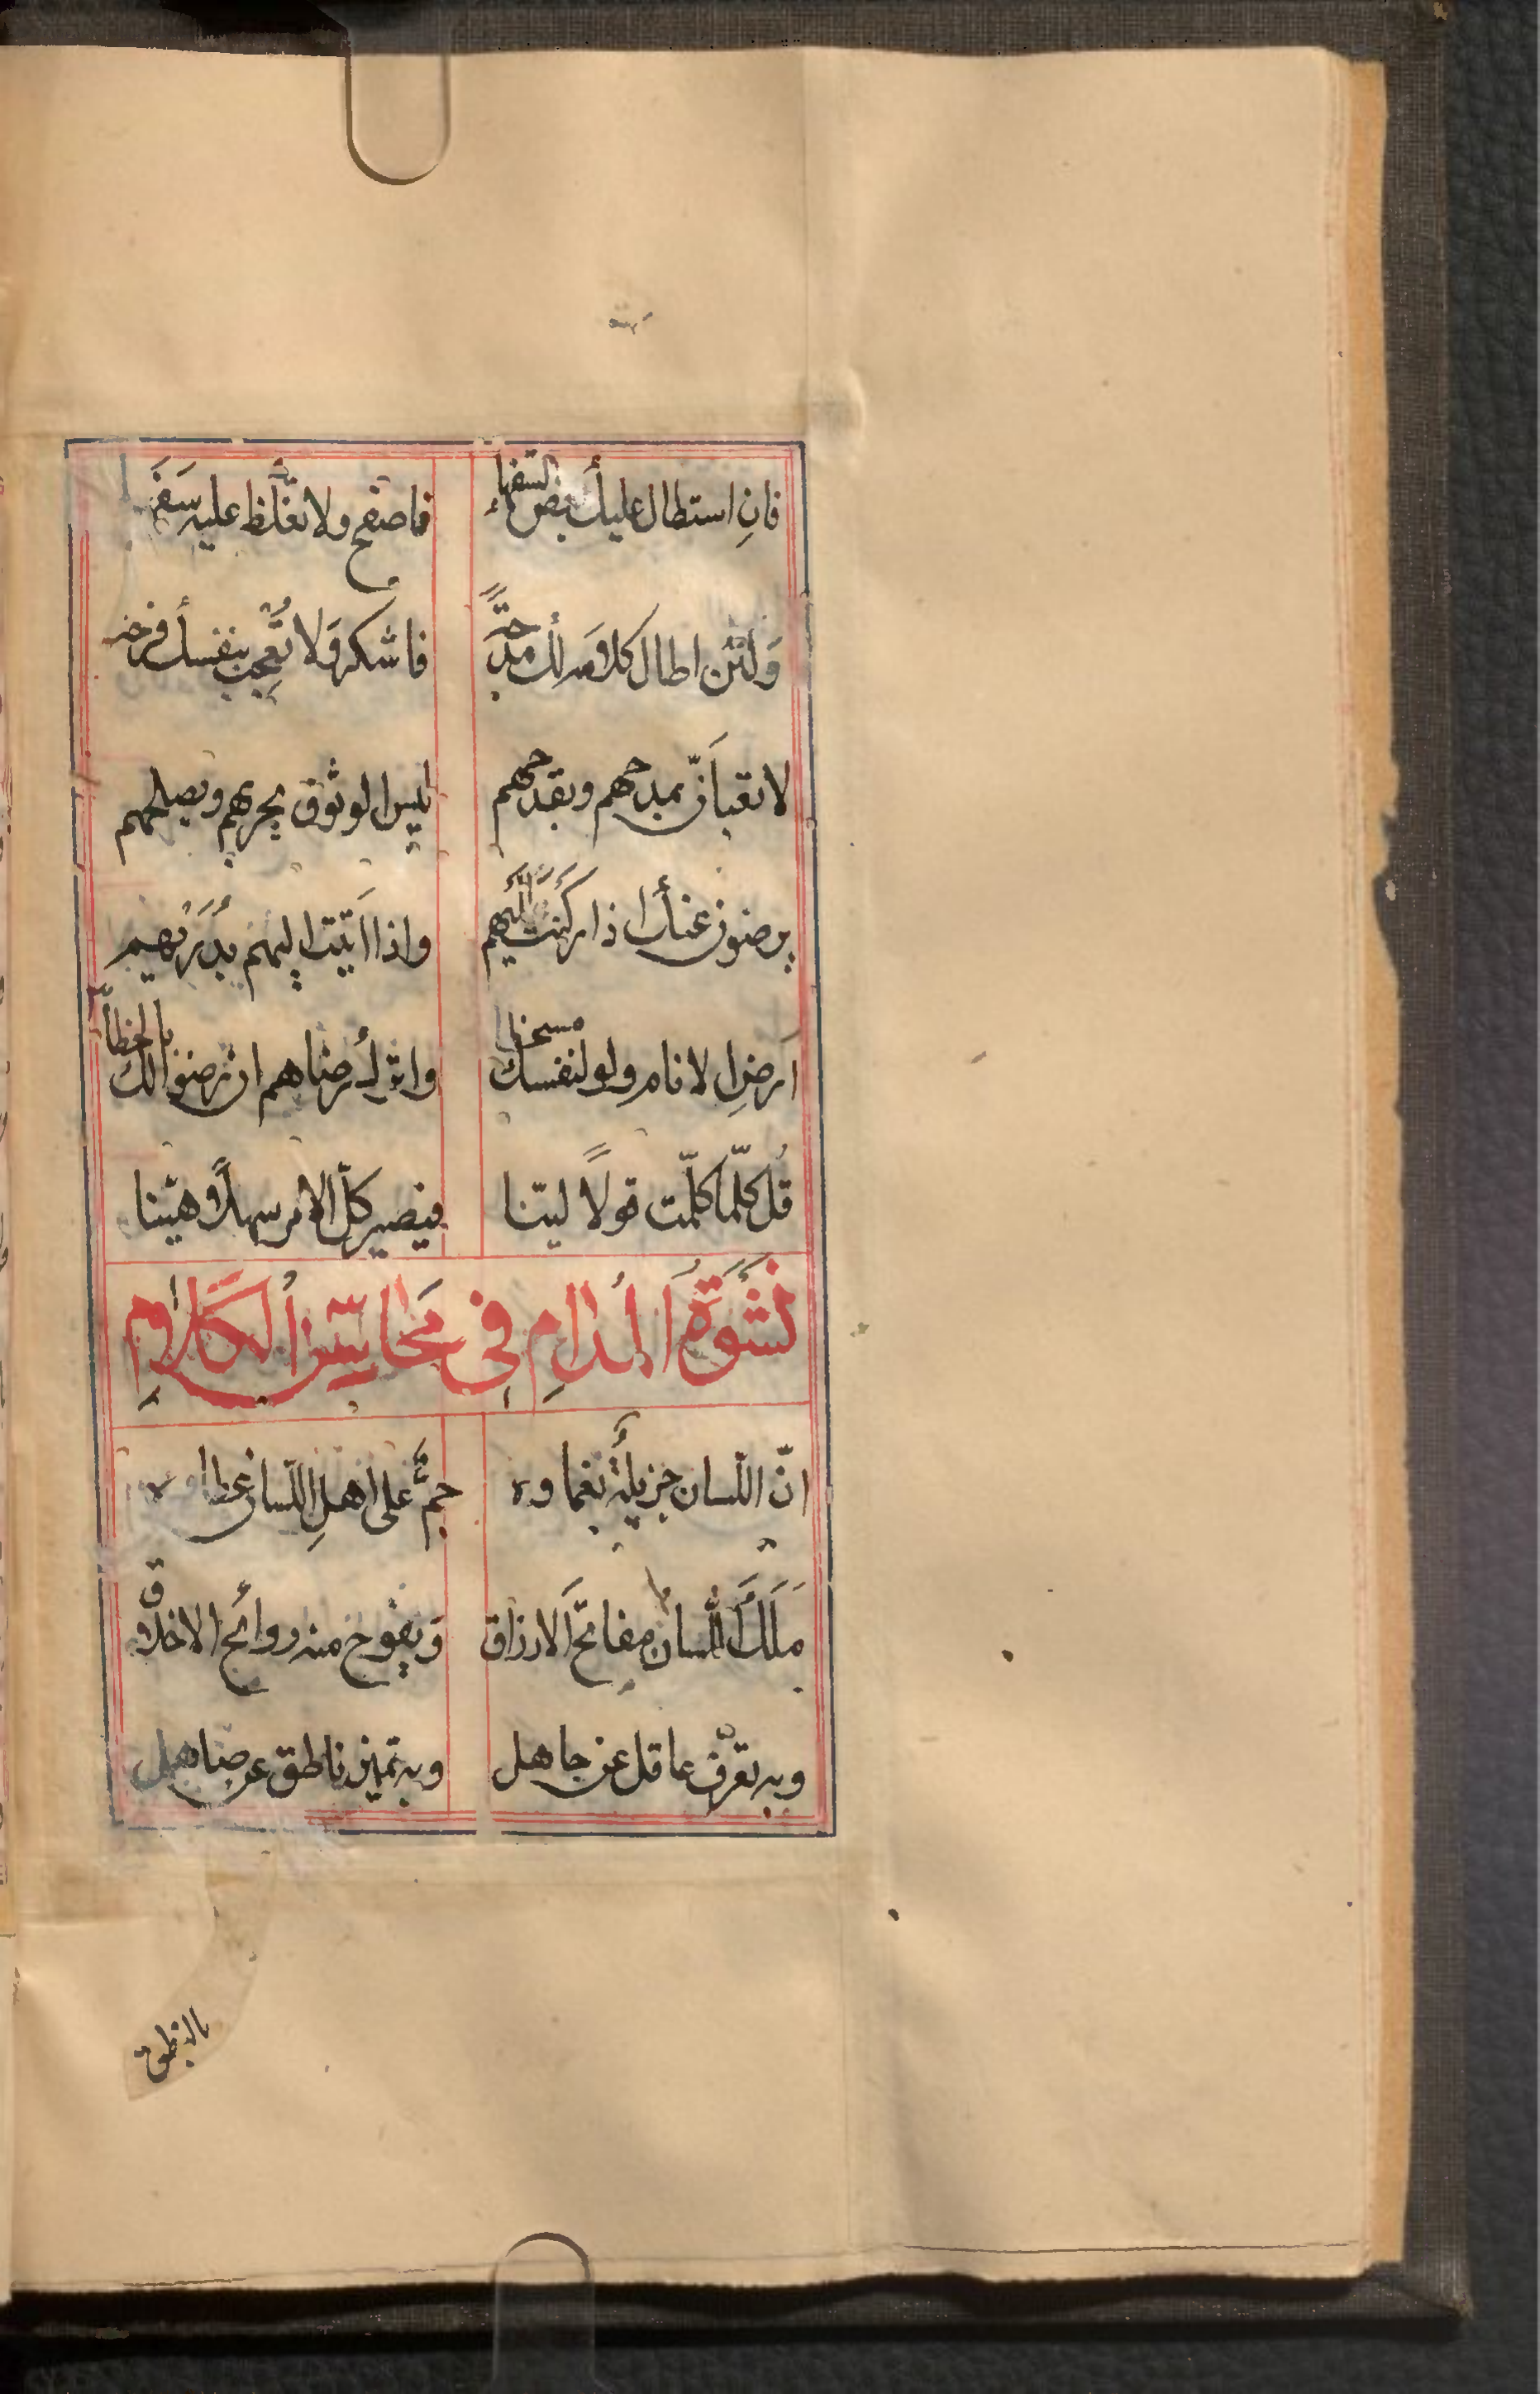 فانِ استطال عليك بعض السفهاء فاصفح ولا تغلّظ عليه سفها
وَلئن اطال كلامَه لك مدحةً فاشكر وَلا تُعجب بنفسك فرحة
لا تعبأنّ بمدحهم وبقدحهم ليس الوثوق بحربهم وبصلحهم
يرضون عنك اذا ركَنتَ اليهم واذا اتيت اليهم
اَرضِ الانام ولو لنفسك مسخطا واترك رضاهم ان رضوا لك بالخطأ
قُل كلّما كلّمت قولاً ليّنا فيصير كلّ الامر سهلاً وهيّنا
نَشْوَةُ المُدامِ فِي مَحَاسِنِ الكَلَامِ
انّ اللّسان جزيلة نعماوه جمٌّ على اهلِ اللّسان عطاوه
مَلَكَ اللّسان مفاتحَ الارزاق وَيفوح منه روائح الاخلاق
وبه تعرّف عاقل عن جاهل وبه تميز ناطق عن صاهل